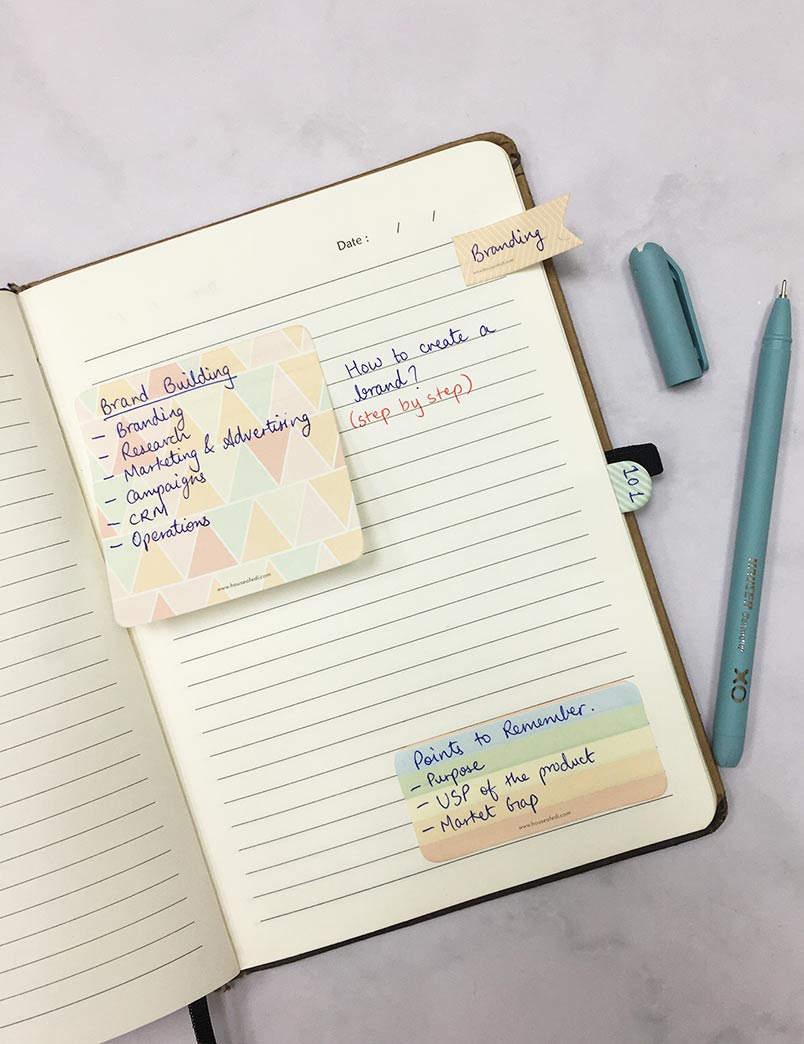 Date : / /
Branding
www.houseofedi.com
How to create a
brand?
(step by step)
Brand Building
- Branding
- Research
- Marketing & Advertising
- Campaigns
- CRM
- Operations
www.houseofedi.com
101
Points to Remember.
- Purpose
- USP of the product
- Market Gap
www.houseofedi.com
OX